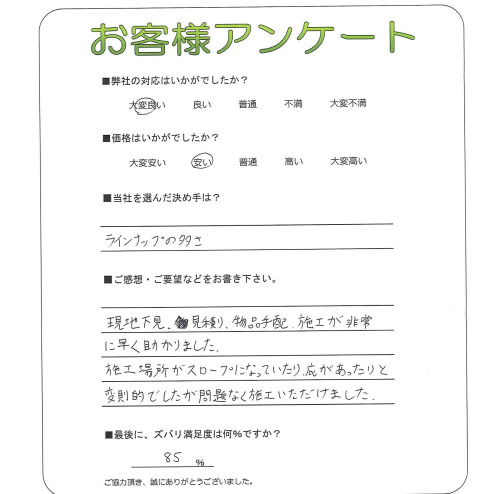 お客様アンケート
■弊社の対応はいかがでしたか？
大変良い 良い 普通 不満 大変不満
■価格はいかがでしたか？
大変安い 安い 普通 高い 大変高い
■当社を選んだ決め手は？
ラインナップの多さ
■ご感想・ご要望などをお書き下さい。
現地下見、見積り、物品手配、施工が非常
に早く助かりました。
施工場所がスロープになっていたり、庇があったりと
変則的でしたが問題なく施工いただけました。
■最後に、ズバリ満足度は何%ですか？
85 %
ご協力頂き、誠にありがとうございました。